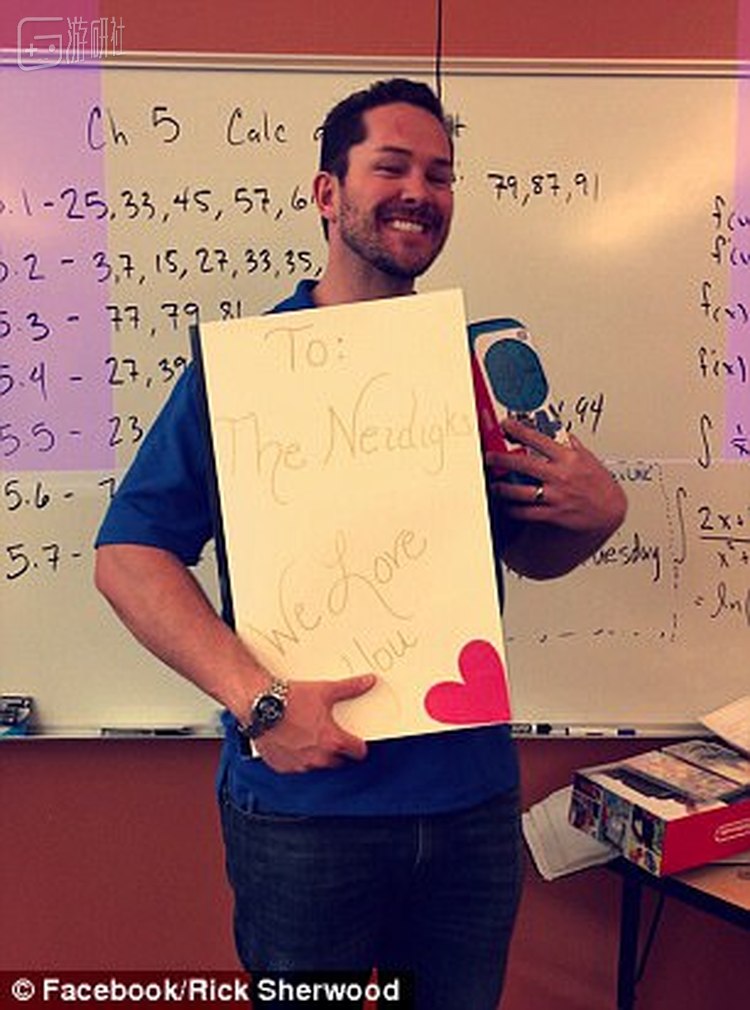 游研社
Ch 5 Calc
5.1-25,33,45,57,6
79,87,91
5.2 - 3,7,15,27,33,35,
5.3 - 77,79 81
5.4 - 27,39
5.5 - 23
94
5.6 -
5.7-
To:
The Nerdigks
We Love
You
f(x)
f'(x)
∫
∫ 2x+
= ln(
uesday
© Facebook/Rick Sherwood